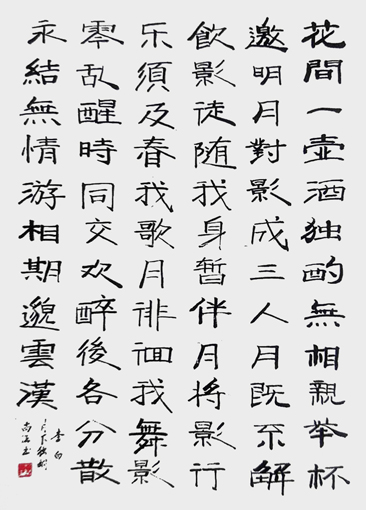 花間一壺酒独酌無相親举杯
邀明月對影成三人月既不解
飲影徒随我身暫伴月将影行
乐須及春我歌月徘徊我舞影
零乱醒時同交欢醉後各分散
永結無情游相期邈雲漢
李白
月下独酌